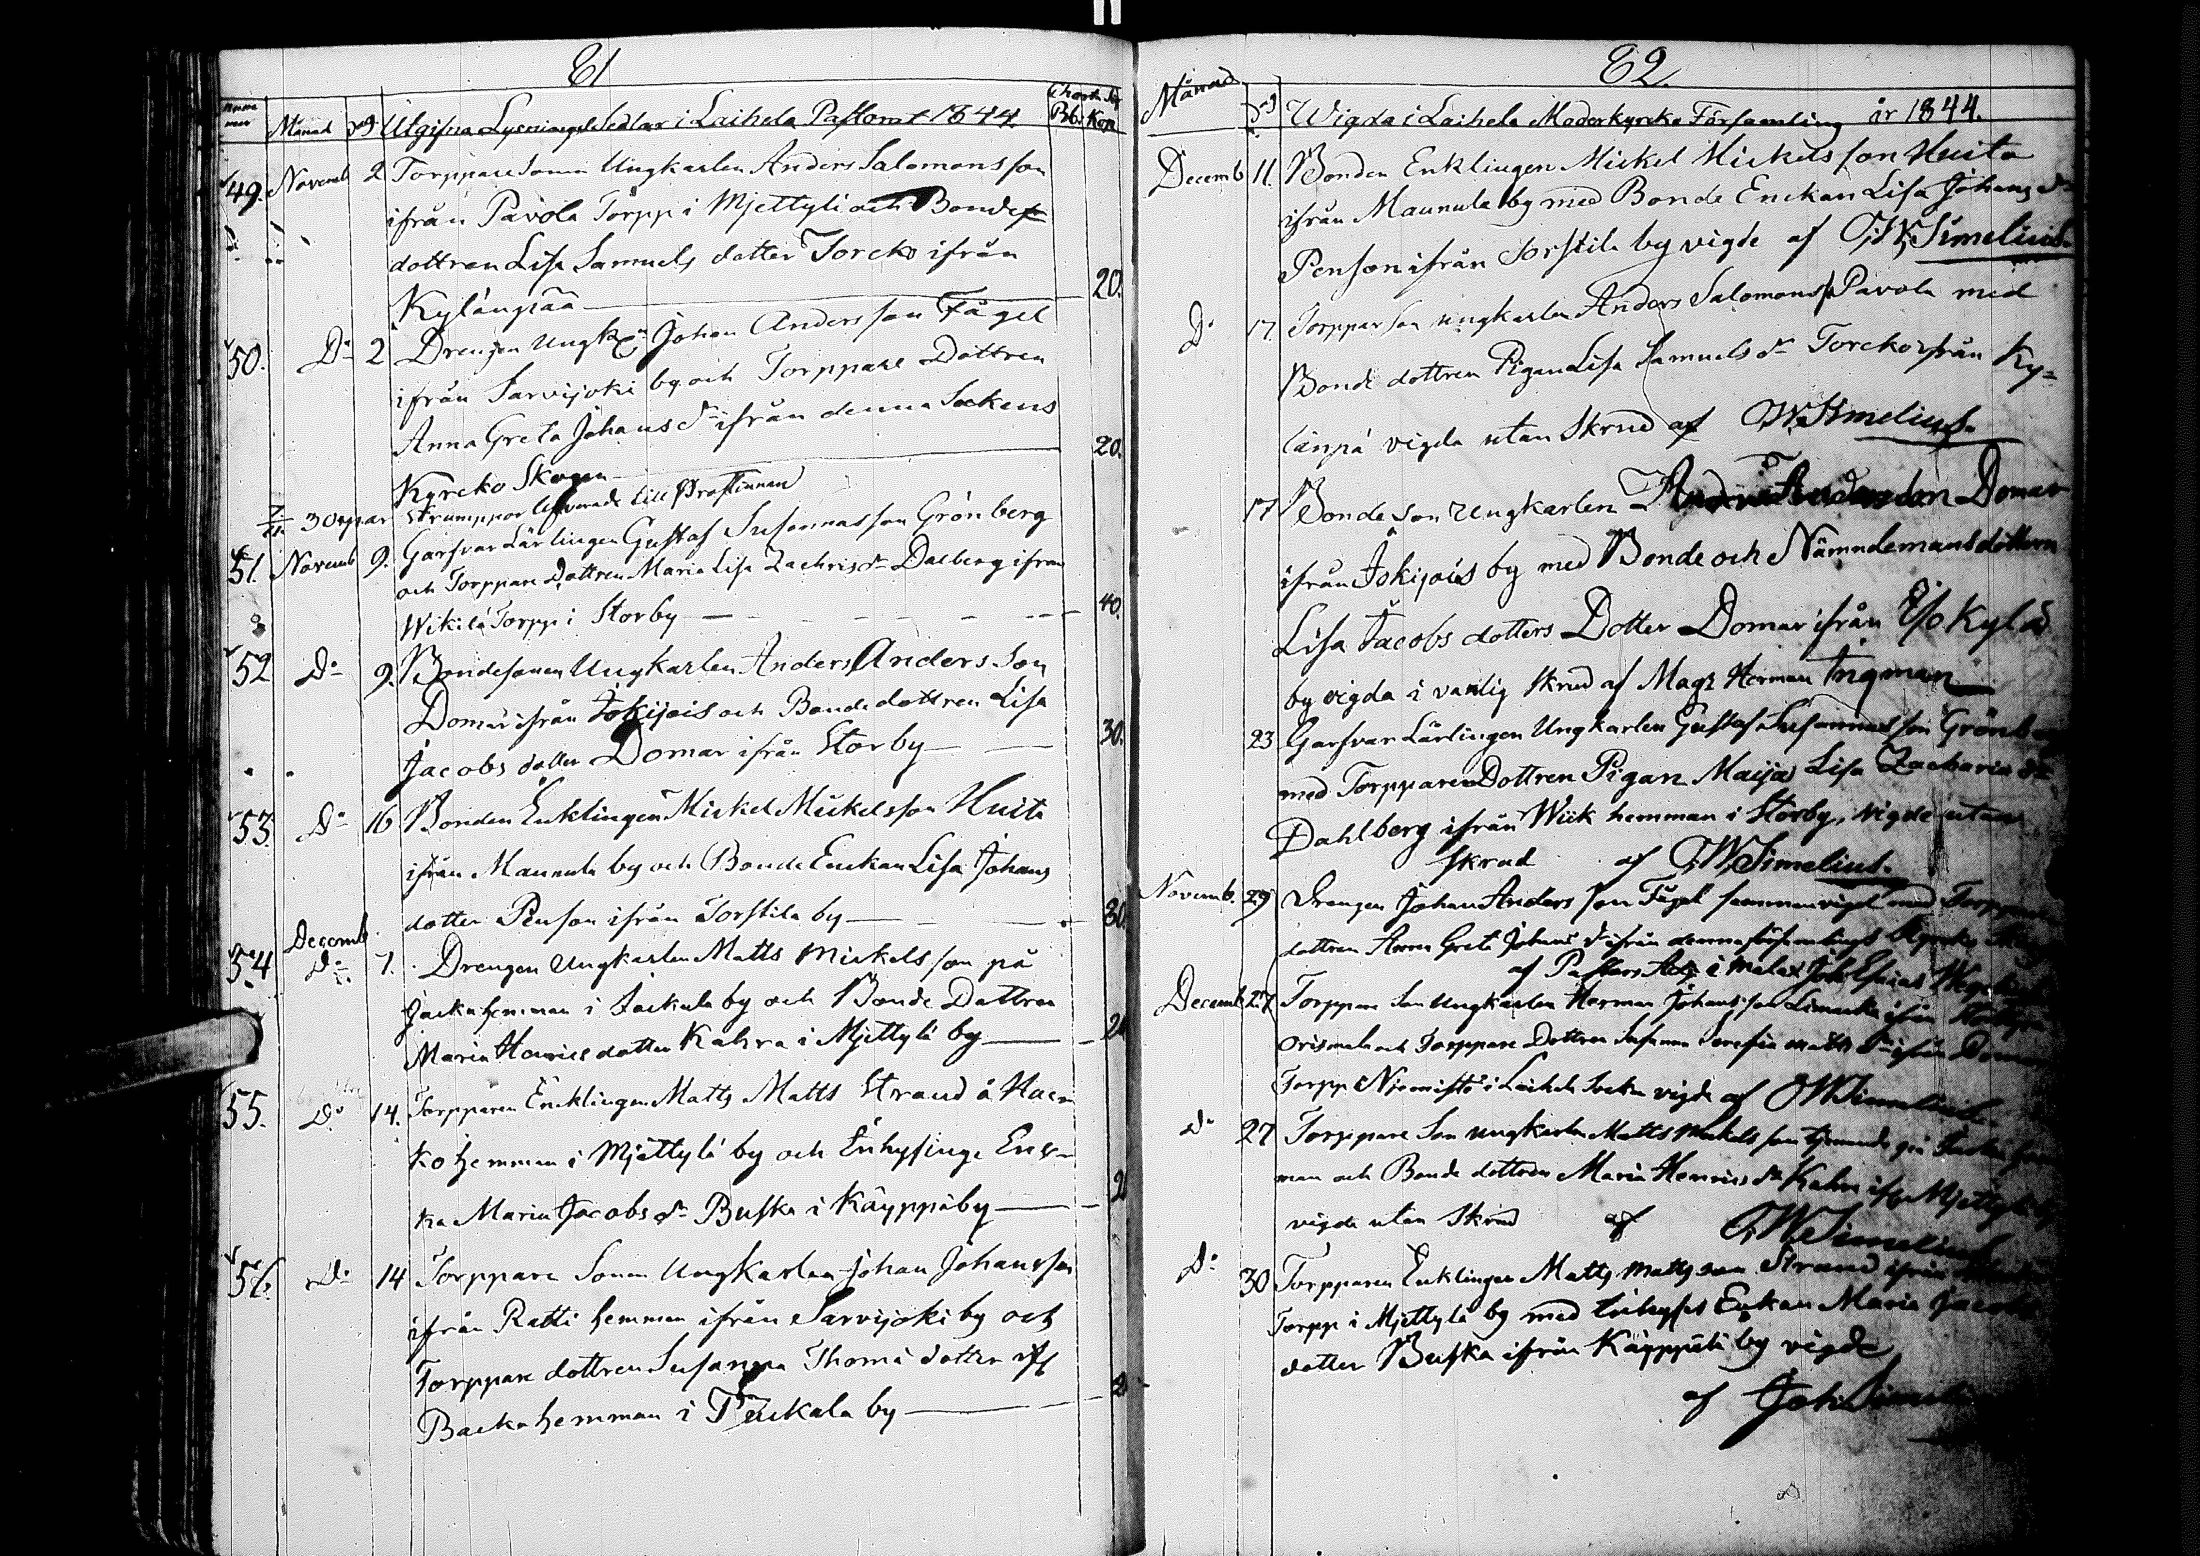 81
Månad dag Utgifna Lysningssedlar i Laihela Pastorat 1844. Rb. Kop.
49. Novemb 2 Torppare Sonen Ungkarlen Anders Salomonsson
ifrån Pavola Torpp i Mjettylä och Bonde
dottren Lisa Samuels dotter Torcko ifrån
Kylänpää 20.
50. Do 2 Drengen Ungk. Johan Andersson Fågel
ifrån Sarvijoki by och Torppare Dottren
Anna Greta Johans dr ifrån denna Sockens
Kyrcko Skogen 20.
30 par Strumppor lefverade till Prostinnan
51. Novemb 9. Garfvar Lärlingen Gustaf Susannasson Grönberg
och Torppare Dottren Maria Lisa Zachris dr Dalberg ifrån
Wikilä Torpp i Storby 40.
52 Do 9. Bondesonen Ungkarlen Anders Andersson
Domar ifrån Jokijois och Bondedottren Lisa
Jacobs dotter Domar ifrån Storby 30.
53. Do 16 Bonden Enklingen Mickel Mickelsson Huita
ifrån Maunula by och Bonde Enckan Lisa Johans
dotter Penson ifrån Torstila by 30.
Decemb.
54 Do 7. Drengen Ungkarlen Matts Mickelsson på
Jacka hemman i Jackula by och Bonde Dottren
Maria Henrics dotter Kahra i Mjettylä by 20
55. Do 14. Torpparen Encklingen Matts Matts Strand å Haen
ko hemman i Mjettylä by och Enhysinge Enc-
ka Maria Jacobs dr Buska i Käyppä by 2
56. Do 14 Torppare Sonen Ungkarlen Johan Johansson
ifrån Ratti hemman ifrån Sarvijoki by och
Torppare dottren Susanna Thomä dotter
Backa hemman i Peukala by 2
82.
Månad dag Wigda i Laihela Moderkyrcko Församling år 1844.
Decemb 11. Bonden Enklingen Mickel Mickelsson Huita
ifrån Maunula by med Bonde Enckan Lisa Johans dr
Penson ifrån Torstila by vigde af G W Simelius
Do 17. Torppar Son ungkarlen Anders Salomonss Pavola med
Bonde dottren Pigan Lisa Samuels dr Torcko ifrån Ky=
länpä vigda utan Skrud af GW Simelius
17 Bonde son Ungkarlen Domar
ifrån Jokijois by med Bonde och Nämndemansdottren
Lisa Jacobs dotters Dotter Domar ifrån Isokylä
by vigda i vanlig skrud af Mag. Herman Ingman
23 Garfvar Lärlingen Ungkarlen Gustaf Susannasson Grönb
med Torpparen Dottren Pigan Maija Lisa Zacharia dr
Dahlberg ifrån Wiik hemman i Storby, vigde utan
skrud af GW Simelius.
Novemb. 29 Drengen Johan Andersson Fågel sammanvigd med Torppare
dottren Anna Greta Johans dr ifrån denna församlings Kyrcko
af Pastors Adj. i Malax Joh Esaias
Decemb 27 Torppare Son Ungkarlen Herman Johansson ifrån
Orismala och Torppare Dottren Susanna Serefia Matts dr ifrån
Torpp Niemistö i Laihela Socken vigde af GW Simelius
Do 27 Torppare Son ungkarlen Matts Mickelsson tjenande på Jacka hem
man och Bonde dottren Maria Henrics dr Kahra ifr Mjettylä
vigda utan skrud af GW Simelius
Do 30 Torpparen Enklingen Matts Mattsson Strand ifrån
Torpp i Mjettylä by med Inhyses Enkan Maria Jacobs
dotter Buska ifrån Käyppälä by vigde
af Joh Simelius